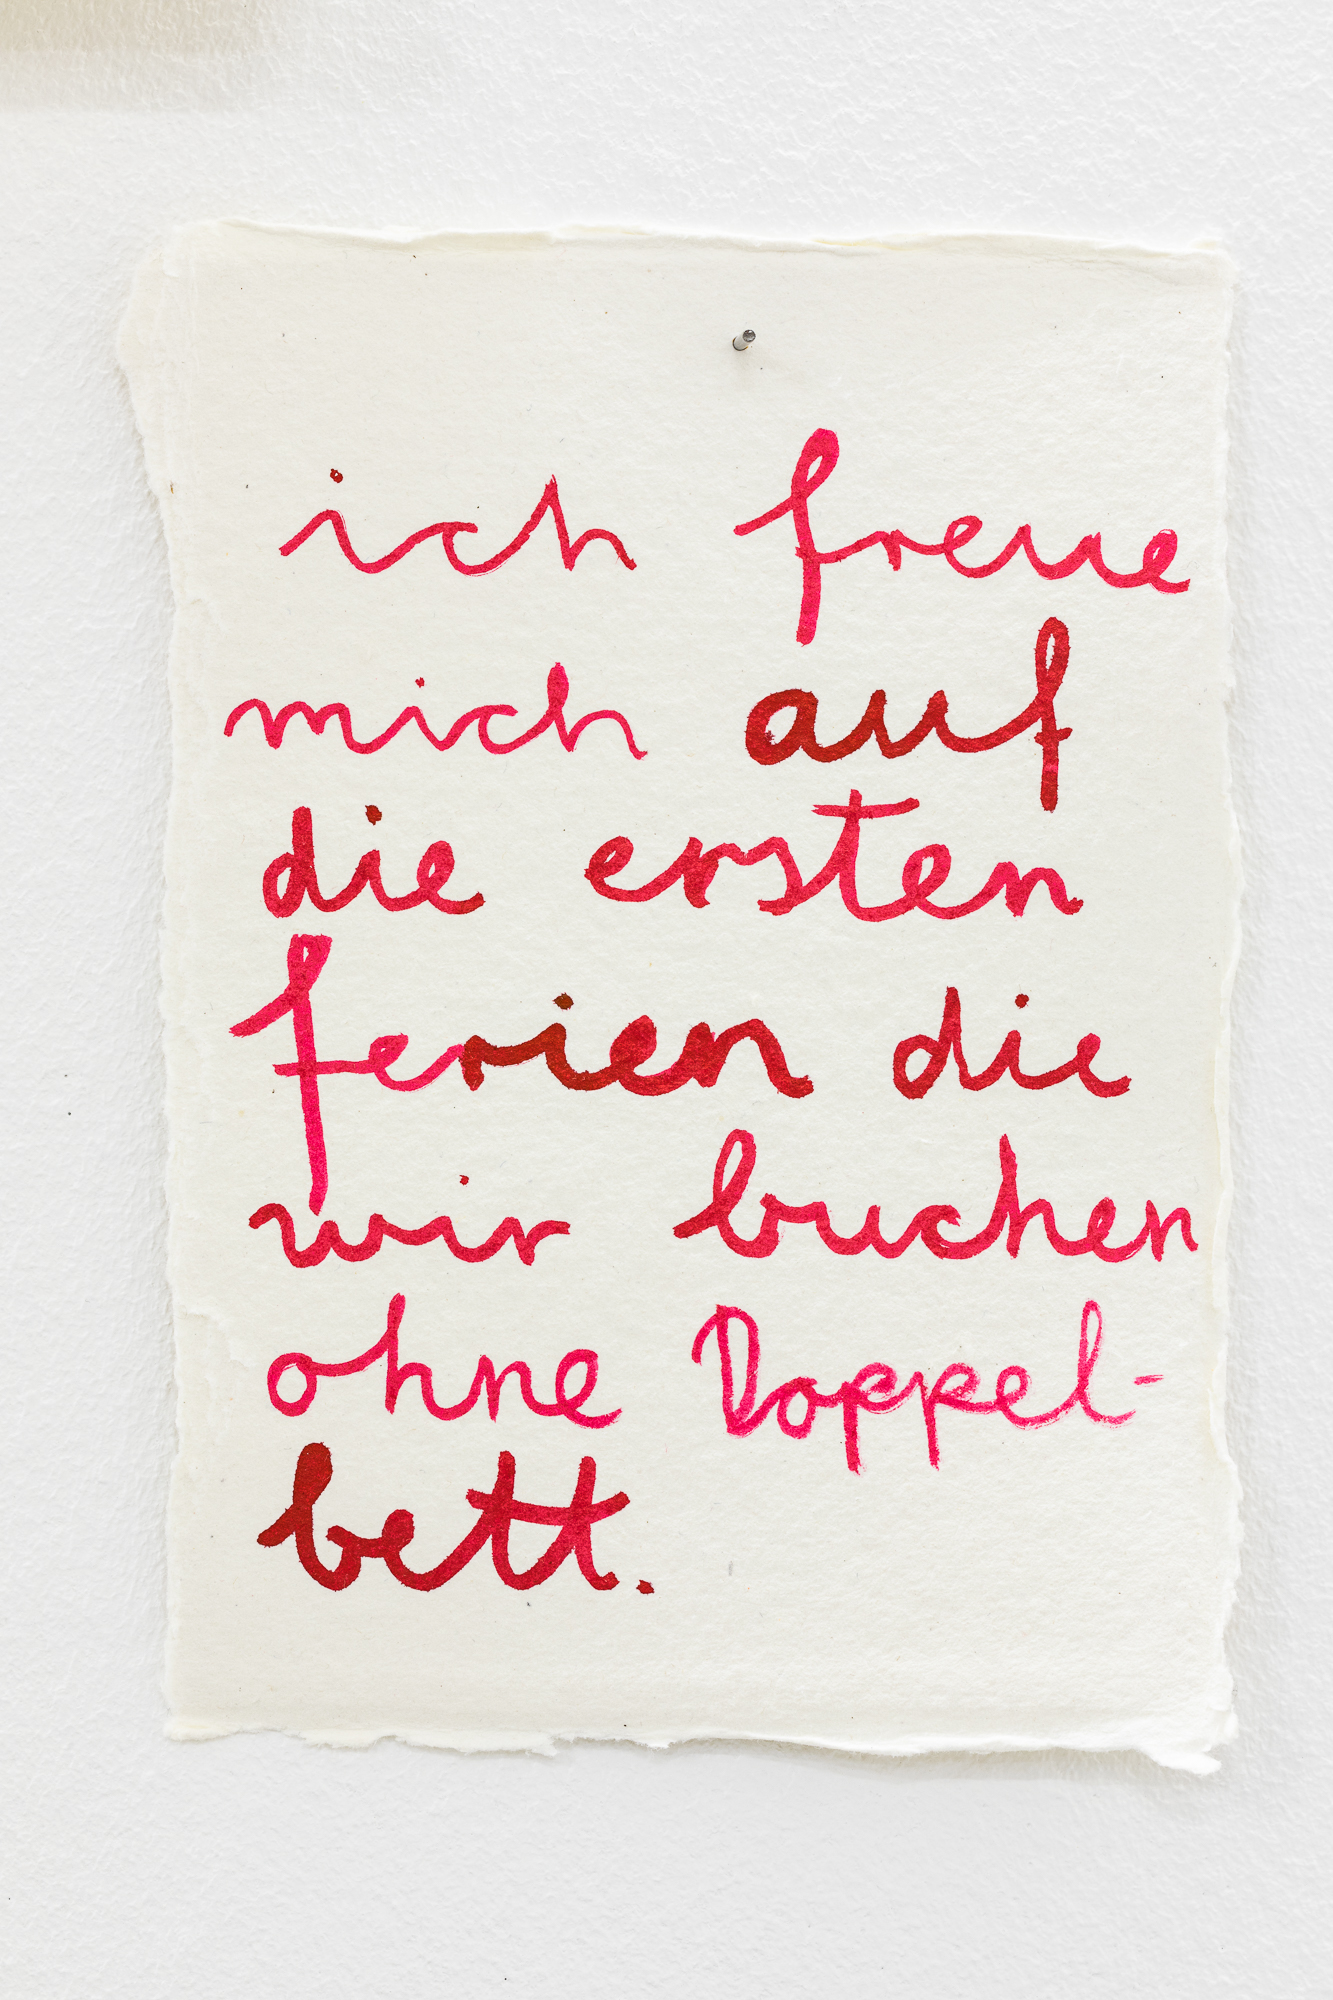 ich freue
mich auf
die ersten
ferien die
wir buchen
ohne Doppel-
bett.